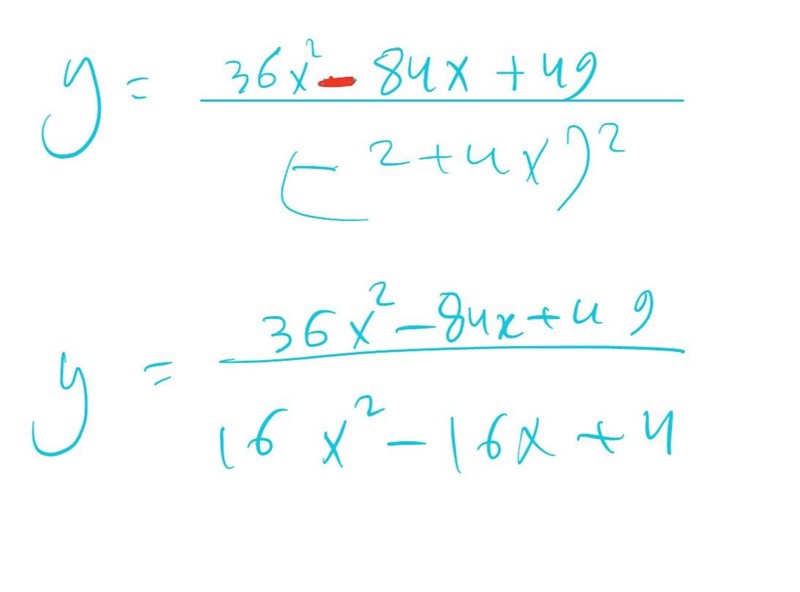 y = 36x² - 84x + 49
(-2 + 4x)²
y = 36x² - 84x + 49
16x² - 16x + 4